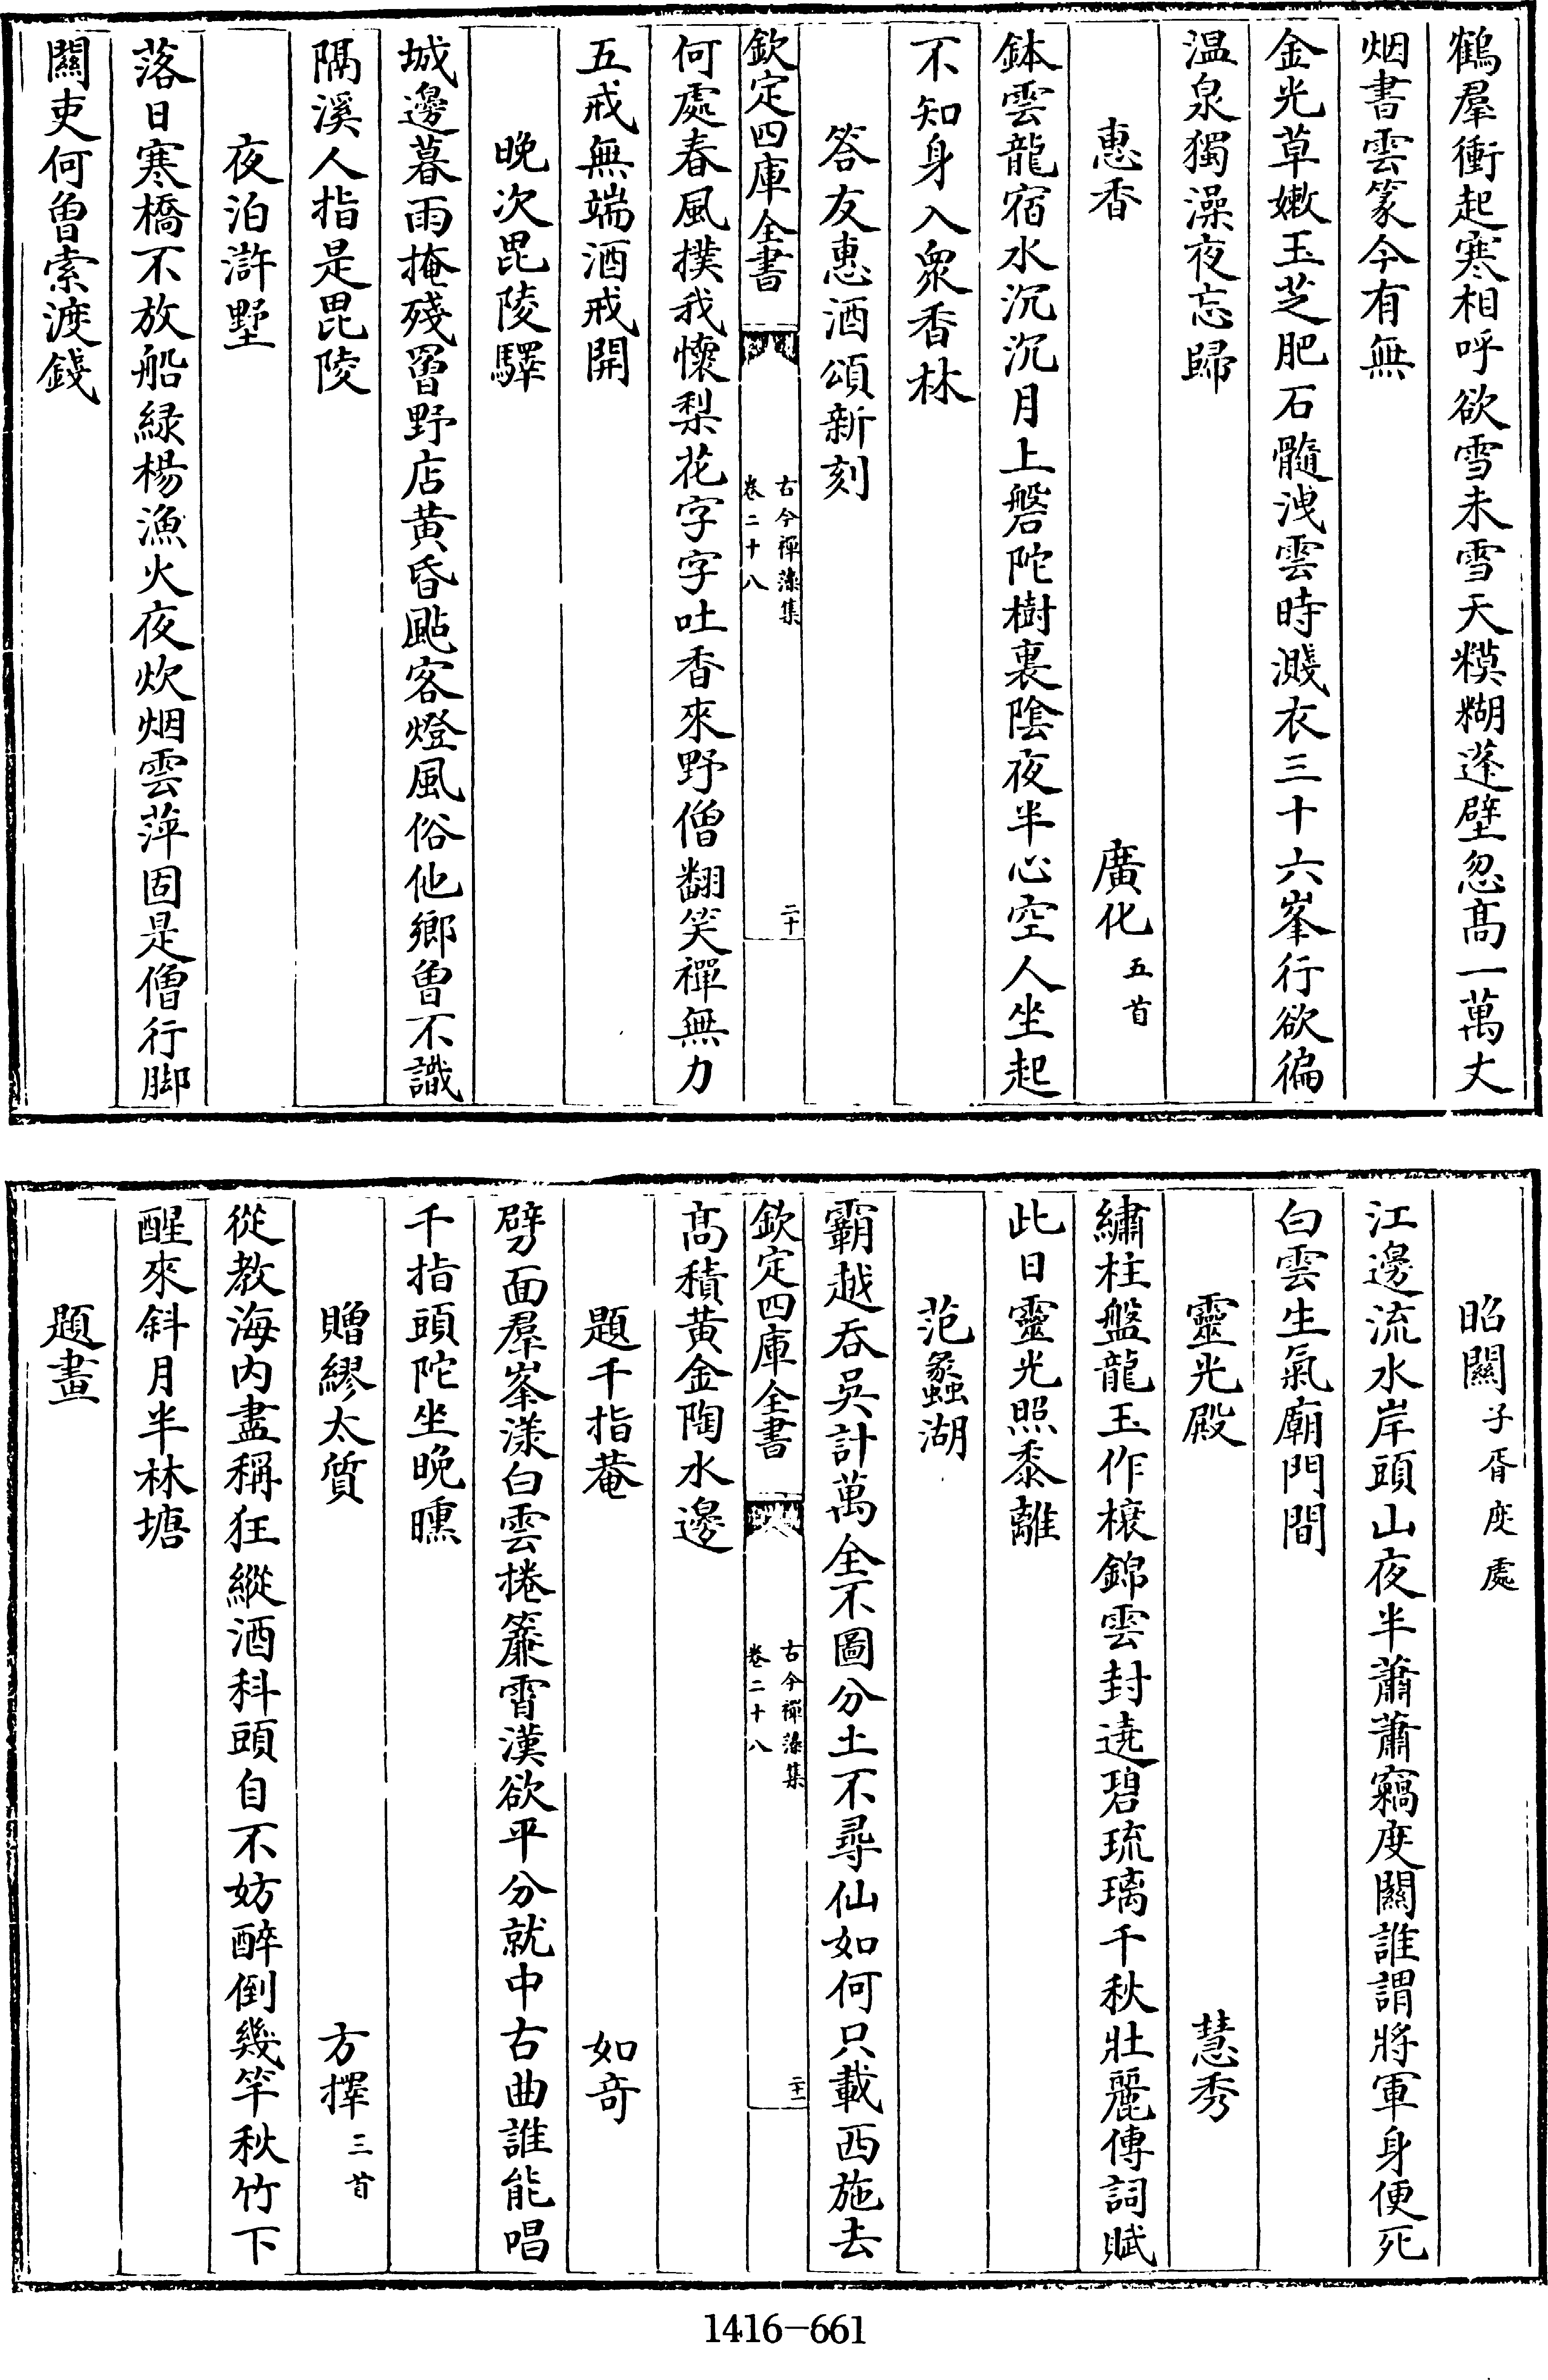 鶴羣衝起寒相呼欲雪未雪天糢糊蓬壁忽髙一萬丈
烟書雲篆今有無
金光草嫩玉芝肥石髓洩雲時濺衣三十六峯行欲徧
温泉獨澡夜忘歸
惠香 廣化五首
鉢雲龍宿水沉沉月上磐陀樹裏陰夜半心空人坐起
不知身入衆香林
答友惠酒頌新刻
欽定四庫全書 古今禪藻集 卷二十八 二十
何處春風撲我懷梨花字字吐香來野僧翻笑禪無力
五戒無端酒戒開
晚次毘陵驛
城邊暮雨掩殘罾野店黄昏颭客燈風俗他鄉曾不識
隔溪人指是毘陵
夜泊滸墅
落日寒橋不放船緑楊漁火夜炊烟雲萍固是僧行脚
關吏何曾索渡錢
昭關子胥度處
江邊流水岸頭山夜半蕭蕭竊度關誰謂將軍身便死
白雲生氣廟門間
靈光殿 慧秀
繡柱盤龍玉作榱錦雲封遶碧琉璃千秋壯麗傳詞賦
此日靈光照黍離
范蠡湖
霸越吞吳計萬全不圖分土不尋仙如何只載西施去
欽定四庫全書 古今禪藻集 卷二十八 二十一
髙積黄金陶水邊
題千指菴 如奇
劈面羣峯漾白雲捲簾霄漢欲平分就中古曲誰能唱
千指頭陀坐晚曛
贈繆太質 方擇三首
從教海内盡稱狂縱酒科頭自不妨醉倒幾竿秋竹下
醒來斜月半林塘
題畫
1416-661